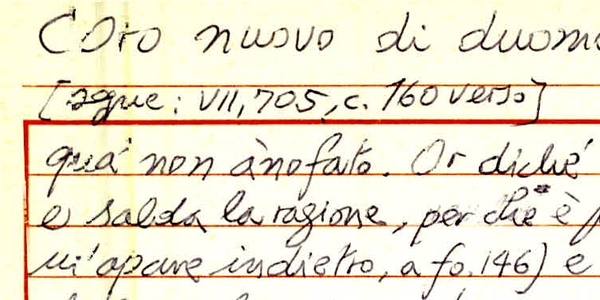 Coro nuovo di duomo
[segue: VII, 705, c. 160 verso]
qua' non ànofato. Or dichè
e salda la ragione, per che* è
vi' apare indietro, a fo. 146) e